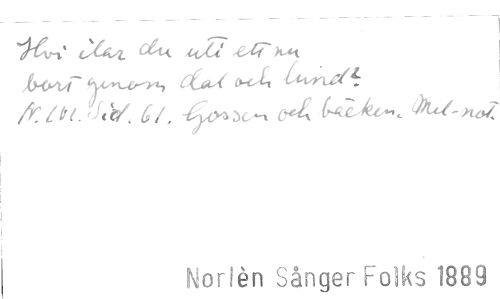 Hvi ilar du uti ett nu
bort genom dal och lund?
N. 101. Sid. 61. Gossen och bäcken. Mel-not.
Norlèn Sånger Folks 1889